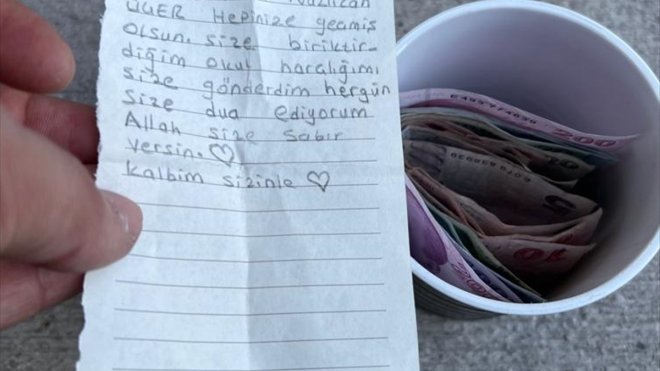 ÜLGER Hepinize geçmiş
olsun. size biriktir-
diğim okul harçlığımı
size gönderdim hergün
size dua ediyorum
Allah size sabır
versin.♡
Kalbim sizinle ♡
200
10